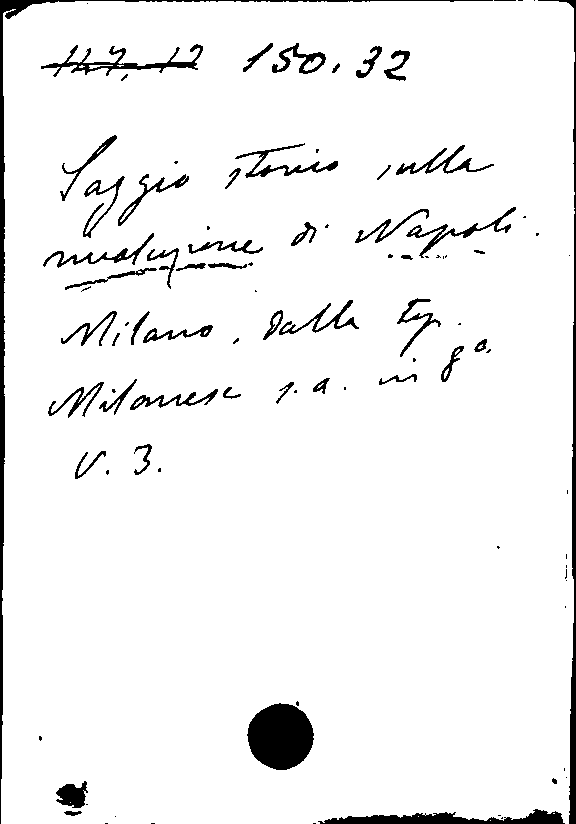 147. 12 150.32
Saggio storico sulla
rivoluzione di Napoli.
Milano, dalla typ.
Milanese s.a. in 8º.
V. 3.